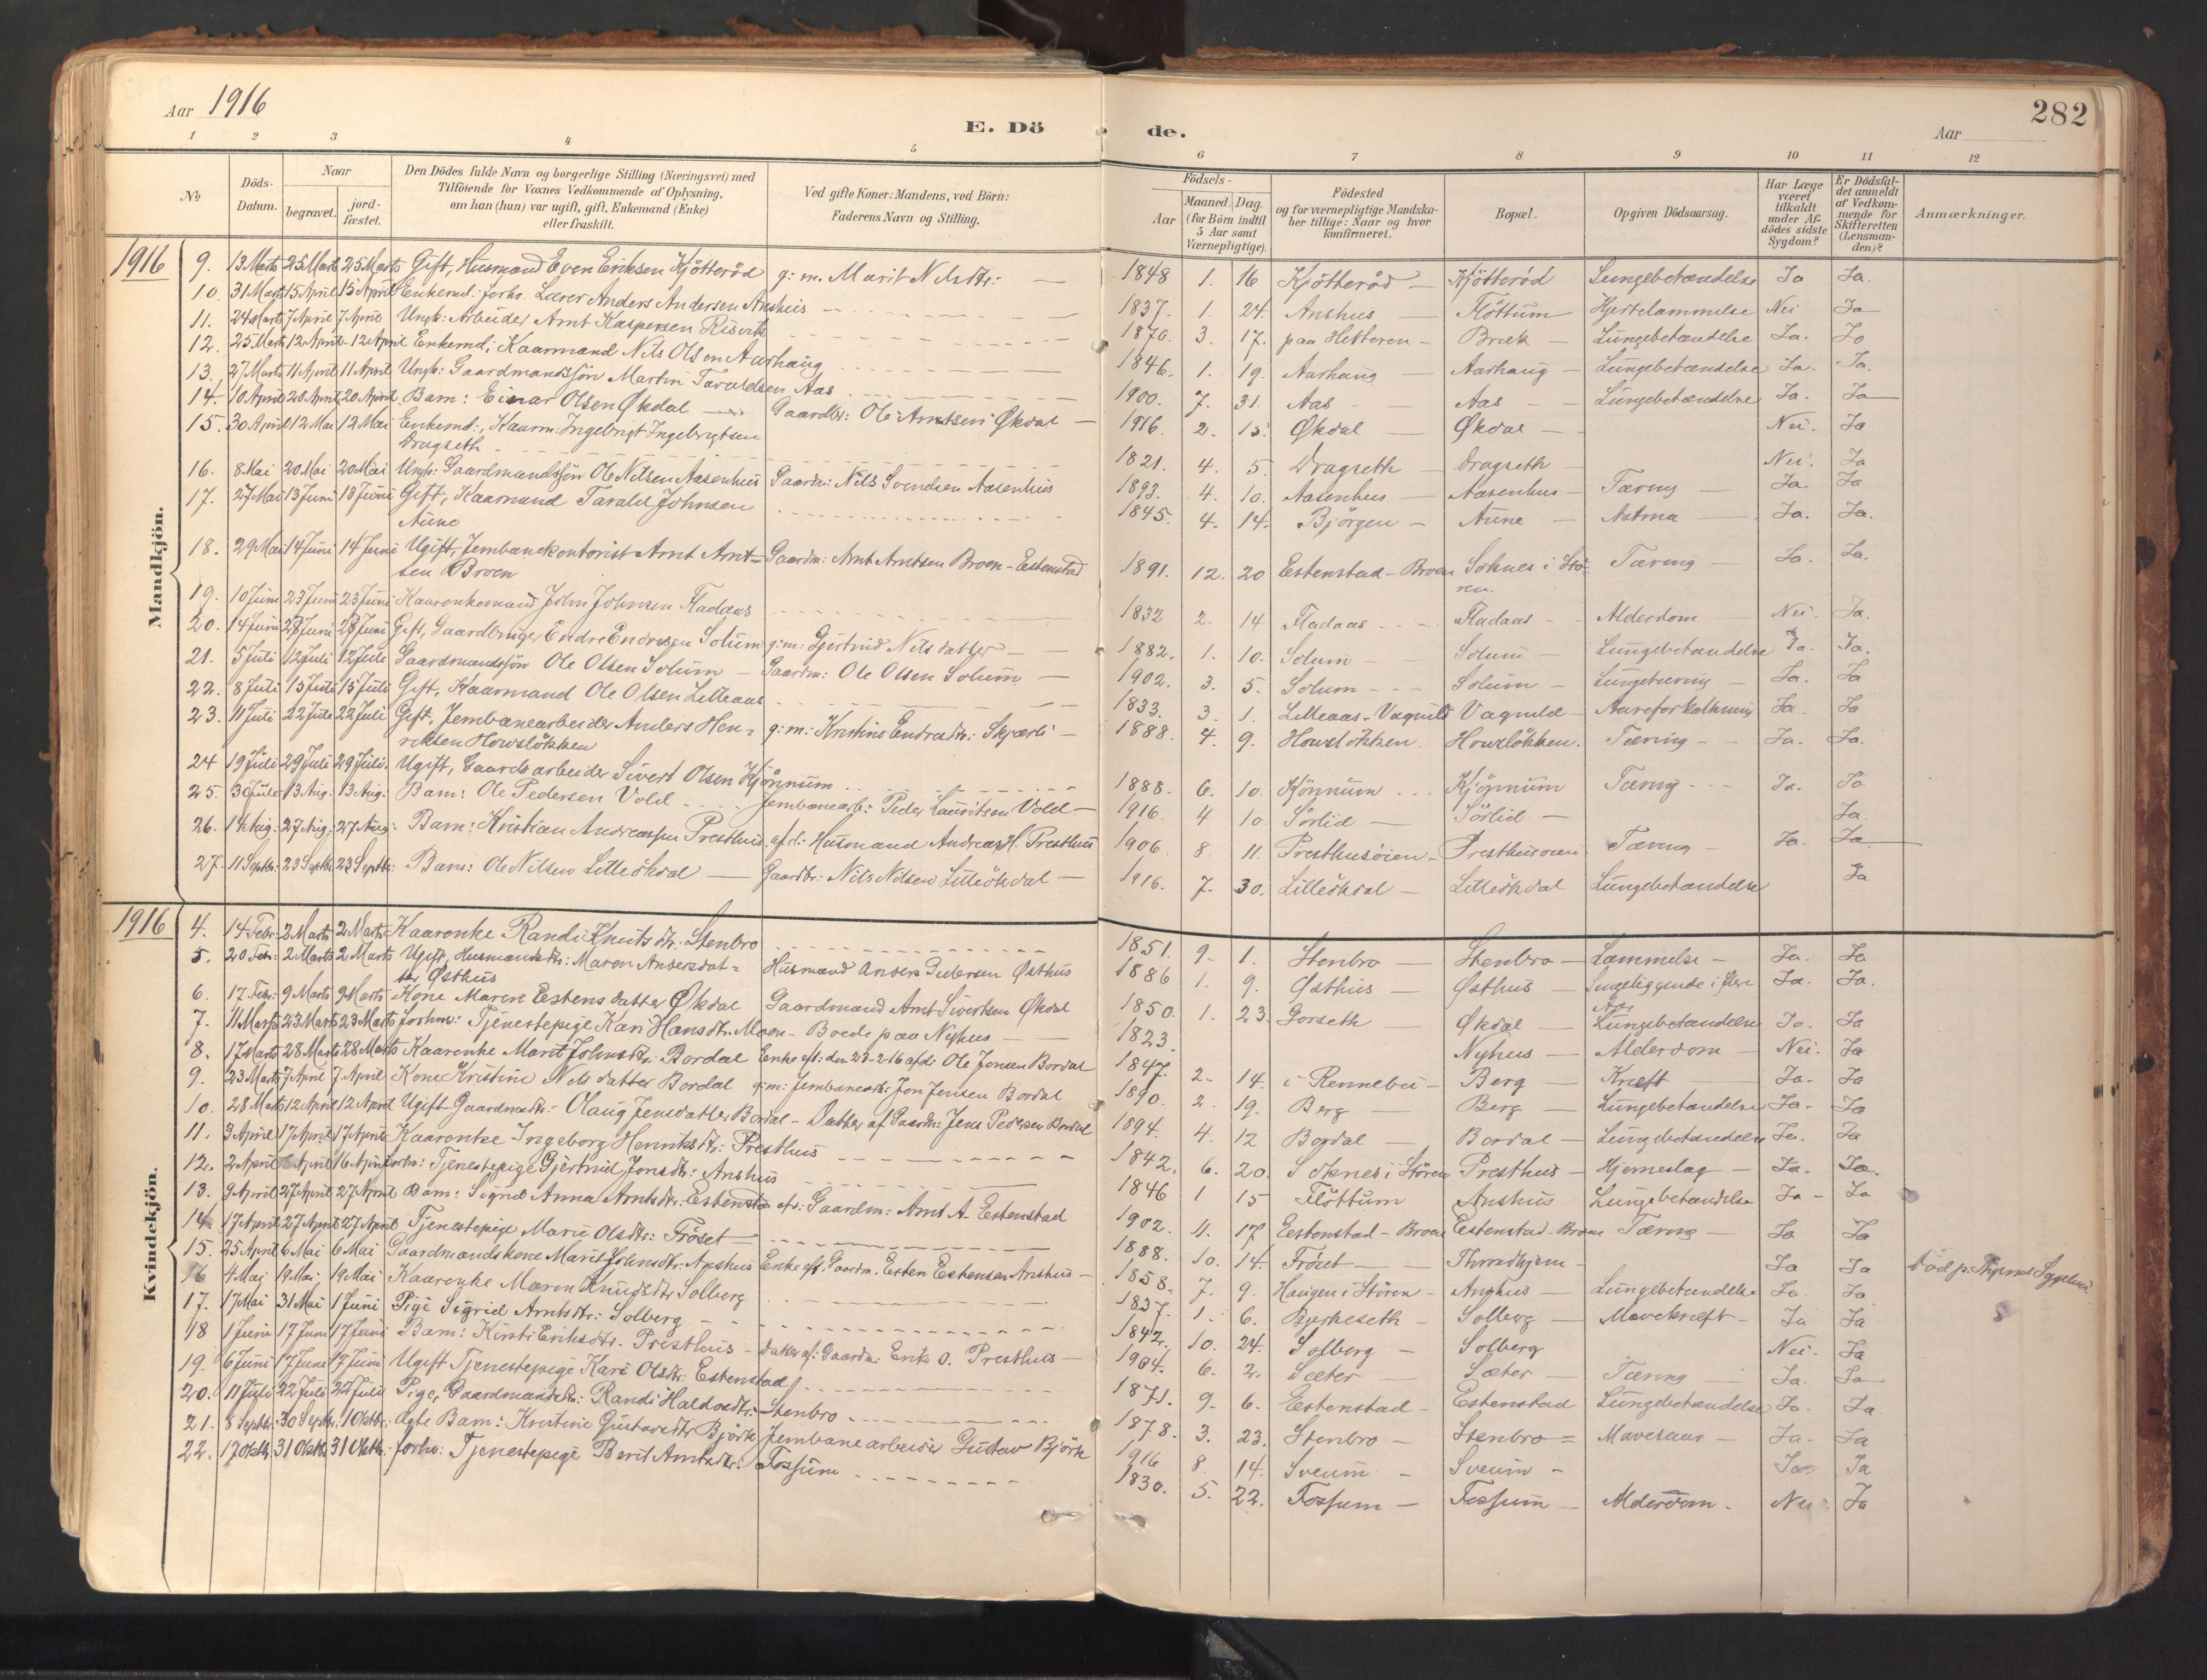 Aar 1916
E. Dö de.
Aar
282
1 2 3 4 5 6 7 8 9 10 11 12
No
Döds-Datum.
Naar
begravet.
jord-fæstet.
Den Dödes fulde Navn og borgerlige Stilling (Næringsvei) med
Tilföiende for Voxnes Vedkommende af Oplysning,
om han (hun) var ugift, gift, Enkemand (Enke)
eller fraskilt.
Ved gifte Koner: Mandens, ved Börn:
Faderens Navn og Stilling.
Födsels-
Aar
Maaned. Dag.
(for Börn indtil
5 Aar samt
Værnepligtige).
Födested
og for værnepligtige Mandska-
ber tillige: Naar og hvor
konfirmeret.
Bopæl.
Opgiven Dödsaarsag.
Har Læge
været
tilkaldt
under Af-
dödes sidste
Sygdom?
Er Dödsfal-
det anmeldt
af Vedkom-
mende for
Skifteretten
(Lensman-
den)?
Anmærkninger.
Mandkjön.
1916 9. 13 Marts 25 Marts 25 Marts Gift, Husmand Even Eriksen Kjötteröd g: m. Marit Nilsdtr: 1848 1. 16 Kjötteröd Kjötteröd Lungebetændelse Ja Ja.
10. 31 Marts 15 April 15 April Enkemd. forhv. Lærer Anders Andersen Anshus 1837. 1. 24. Anshus Flöttum Hjertelammelse Nei Ja
11. 24 Marts 7 April 7 April Ungk: Arbeider Arnt Kaspersen 1870. 3. 17. paa Hitteren Bræk Lungebetændelse Ja. Ja
12. 25 Marts 12 April 12 April Enkemd; Kaarmand Nils Olsen Aarhaug 1846. 1. 19. Aarhaug Aarhaug Lungebetændelse Ja. Ja.
13. 27 Marts 11 April 11 April Ungk: Gaardmandssön Martin Taraldsen Aas 1900. 7. 31. Aas Aas Lungebetændelse Ja. Ja
14. 10 April 20 April 20 April Barn: Einar Olsen Økdal Gaardbr: Ole Arntsen Økdal 1916. 2. 15. Økdal Økdal Nei. Ja
15. 30 April 12 Mai 12 Mai Enkemd:, Kaarm: Ingebrigt Ingebrigtsen
Dragseth 1821. 4. 5. Dragseth Dragseth Nei. Ja
16. 8 Mai 20 Mai 20 Mai Ungk: Gaardmandssön Ole Nilsen Aasenhus Gaardm: Nils Svendsen Aasenhus 1893. 4. 10. Aasenhus Aasenhus Tæring Ja. Ja
17. 27 Mai 13 Juni 13 Juni Gift, Kaarmand Tarald Johnsen
Aune 1845. 4. 14. Björgen Aune Astma Ja. Ja.
18. 29 Mai 14 Juni 14 Juni Ugift, Jernbanekontorist Arnt Arnt-
sen Broen Gaardm: Arnt Arntsen Broen - Estenstad 1891. 12. 20 Estenstad - Broen Soknes i Stö-
ren. Tæring Ja. Ja.
19. 10 Juni 23 Juni 23 Juni Kaarenkemand John Johnsen Fladaas 1832 2. 14 Fladaas Fladaas Alderdom Nei. Ja.
20. 14 Juni 28 Juni 28 Juni Gift, Gaardbruger Endre Endresen Solum g: m: Gjertrud Nilsdatter 1882. 1. 10. Solum Solum Lungebetændelse Ja. Ja.
21. 5 Juli 12 Juli 12 Juli Gaardmandssön Ole Olsen Solum Gaardm: Ole Olsen Solum 1902. 3. 5. Solum Solum Lungetæring Ja. Ja
22. 8 Juli 15 Juli 15 Juli Gift, Kaarmand Ole Olsen Lilleaas 1833. 3. 1. Lilleaas - Vagnild Vagnild Aareforkalkning Ja. Ja
23. 11 Juli 22 Juli 22 Juli Gift, Jernbanearbeider Anders Hen-
riksen Hovslökken g: m: Kristine Endresdtr: Skjærli 1888. 4. 9. Hovslökken Hovslökken. Tæring Ja. Ja.
24 19 Juli 29 Juli 29 Juli. Ugift, Gaardsarbeider Sivert Olsen Kjönnum 1888. 6. 10. Kjönnum Kjönnum Tæring Ja. Ja
25. 30 Juli 13 Aug: 13 Aug: Barn: Ole Pedersen Vold Jernbanearb: Peder Lauritsen Vold 1916. 4 10 Sörlid Sörlid Ja.
26. 14 Aug: 27 Aug: 27 Aug: Barn: Kristian Andreassen Presthus. af d: Husmand Andreas H. Presthus 1906. 8. 11. Presthusöien Presthusöien Tæring Ja. Ja
27. 11 Septbr: 23 Septbr 23 Septbr: Barn: Ole Nilsen Lilleökdal Gaardbr: Nils Nilsen Lilleökdal 1916. 7. 30. Lilleökdal Lilleökdal Lungebetændelse Ja.
Kvindekjön.
1916 4. 14 Febr: 2 Marts 2 Marts Kaarenke Randi Knutsdtr. Stenbro 1851. 9. 1. Stenbro Stenbro Lammelse Ja. Ja
5. 20 Febr: 2 Marts 2 Marts Ugift, Husmandsdtr: Maren Andersdat-
ter Østhus Husmand Anders Pedersen Østhus 1886 1. 9. Østhus Østhus Sengeliggende i flere
Aar Ja. Ja.
6. 17 Febr: 9 Marts 9 Marts Kone Maren Estensdatter Økdal Gaardmand Arnt Sivertsen Økdal 1850. 1. 23. Gorseth Økdal Lungebetændelse Ja. Ja
7. 11 Marts 23 Marts 23 Marts forhv: Tjenestepige Kari Hansdtr. Moen - Boede paa Nyhus 1823. Nyhus Alderdom Nei. Ja
8. 17 Marts 28 Marts 28 Marts Kaarenke Marit Johnsdtr. Bordal Enke ef: den 23-2-16 afdr Ole Jonsen Bordal 1847. 2. 14. i Rennebu Berg Kræft Ja. Ja
9. 23 Marts 7 April 7 April Kone Kristine Nilsdatter Bordal g: m: Jernbanearb: Jon Jensen Bordal 1890. 2. 19. Berg Berg Lungebetændelse Ja. Ja
10. 28 Marts 12 April 12 April Ugift Gaardmdtr: Olaug Jensdatter Bordal - Datter af Gaardm: Jens Pedersen Bordal 1894. 4. 12 Bordal Bordal Lungebetændelse Ja. Ja
11. 3 April 17 April 17 April Kaarenke Ingeborg Henriksdtr: Presthus 1842. 6. 20. Soknes i Stören Presthus Hjerneslag Ja. Ja.
12. 2 April April 16 April forhv: Tjenestepige Gjertrud Jonsdtr: Anshus 1846 1 15 Flöttum Anshus Lungebetændelse Ja Ja
13. 9 April 27 April 27 April Barn: Sigrid Anna Arntsdtr: Estenstad af: Gaardm: Arnt A. Estenstad 1902. 11. 17 Estenstad - Broen Estenstad - Broen Tæring Ja Ja
14. 17 April 27 April 27 April Tjenestepige Marie Olsdtr: Fröset 1888. 10. 14. Fröset Throndhjem Ja Ja Död p. Sygehus.
15. 25 April 6 Mai 6 Mai Gaardmandskone Marit Johnsdtr: Anshus Enke ef. Gaardm. Esten Estensen Anshus 1858. 7. 9. Haugen i Stören Anshus Lungebetændelse Ja Ja
16 4 Mai 19 Mai 19 Mai Kaarenke Maren Knudsdtr Solberg 1837. 1. 6. Bjerkeseth Solberg Mavekræft Ja Ja
17. 17 Mai 31 Mai 1 Juni Pige Sigrid Arntsdtr: Solberg 1842. 10. 24. Solberg Solberg Nei. Ja
18 1 Juni 17 Juni 17 Juni Barn: Kirsti Eriksdtr. Presthus Datter af: Gaardm: Erik O. Presthus 1904. 6. 2. Sæter Sæter Tæring Ja. Ja
19. 6 Juni 17 Juni 17 Juni Ugift Tjenestepige Kari Olsdtr: Estenstad 1871. 9. 6. Estenstad Estenstad Lungebetændelse Ja. Ja
20. 11 Juli 22 Juli 22 Juli Pige, Gaardmandsdtr: Randi Haldosdtr: Stenbro 1878. 3. 23. Stenbro Stenbro Mavesaar Ja. Ja
21. 8 Septbr: 30 Septbr 1 Oktbr: Ægte Barn: Kristine Gustavsdtr Björk Jernbanearbeider Gustav Björk 1916 8. 14. Sveum Sveum Ja Ja
22. 17 Oktbr. 31 Oktbr 31 Oktbr: forhv: Tjenestepige Berit Arntsdtr: Fossum 1830. 5. 22. Fossum Fossum Alderdom. Nei. Ja